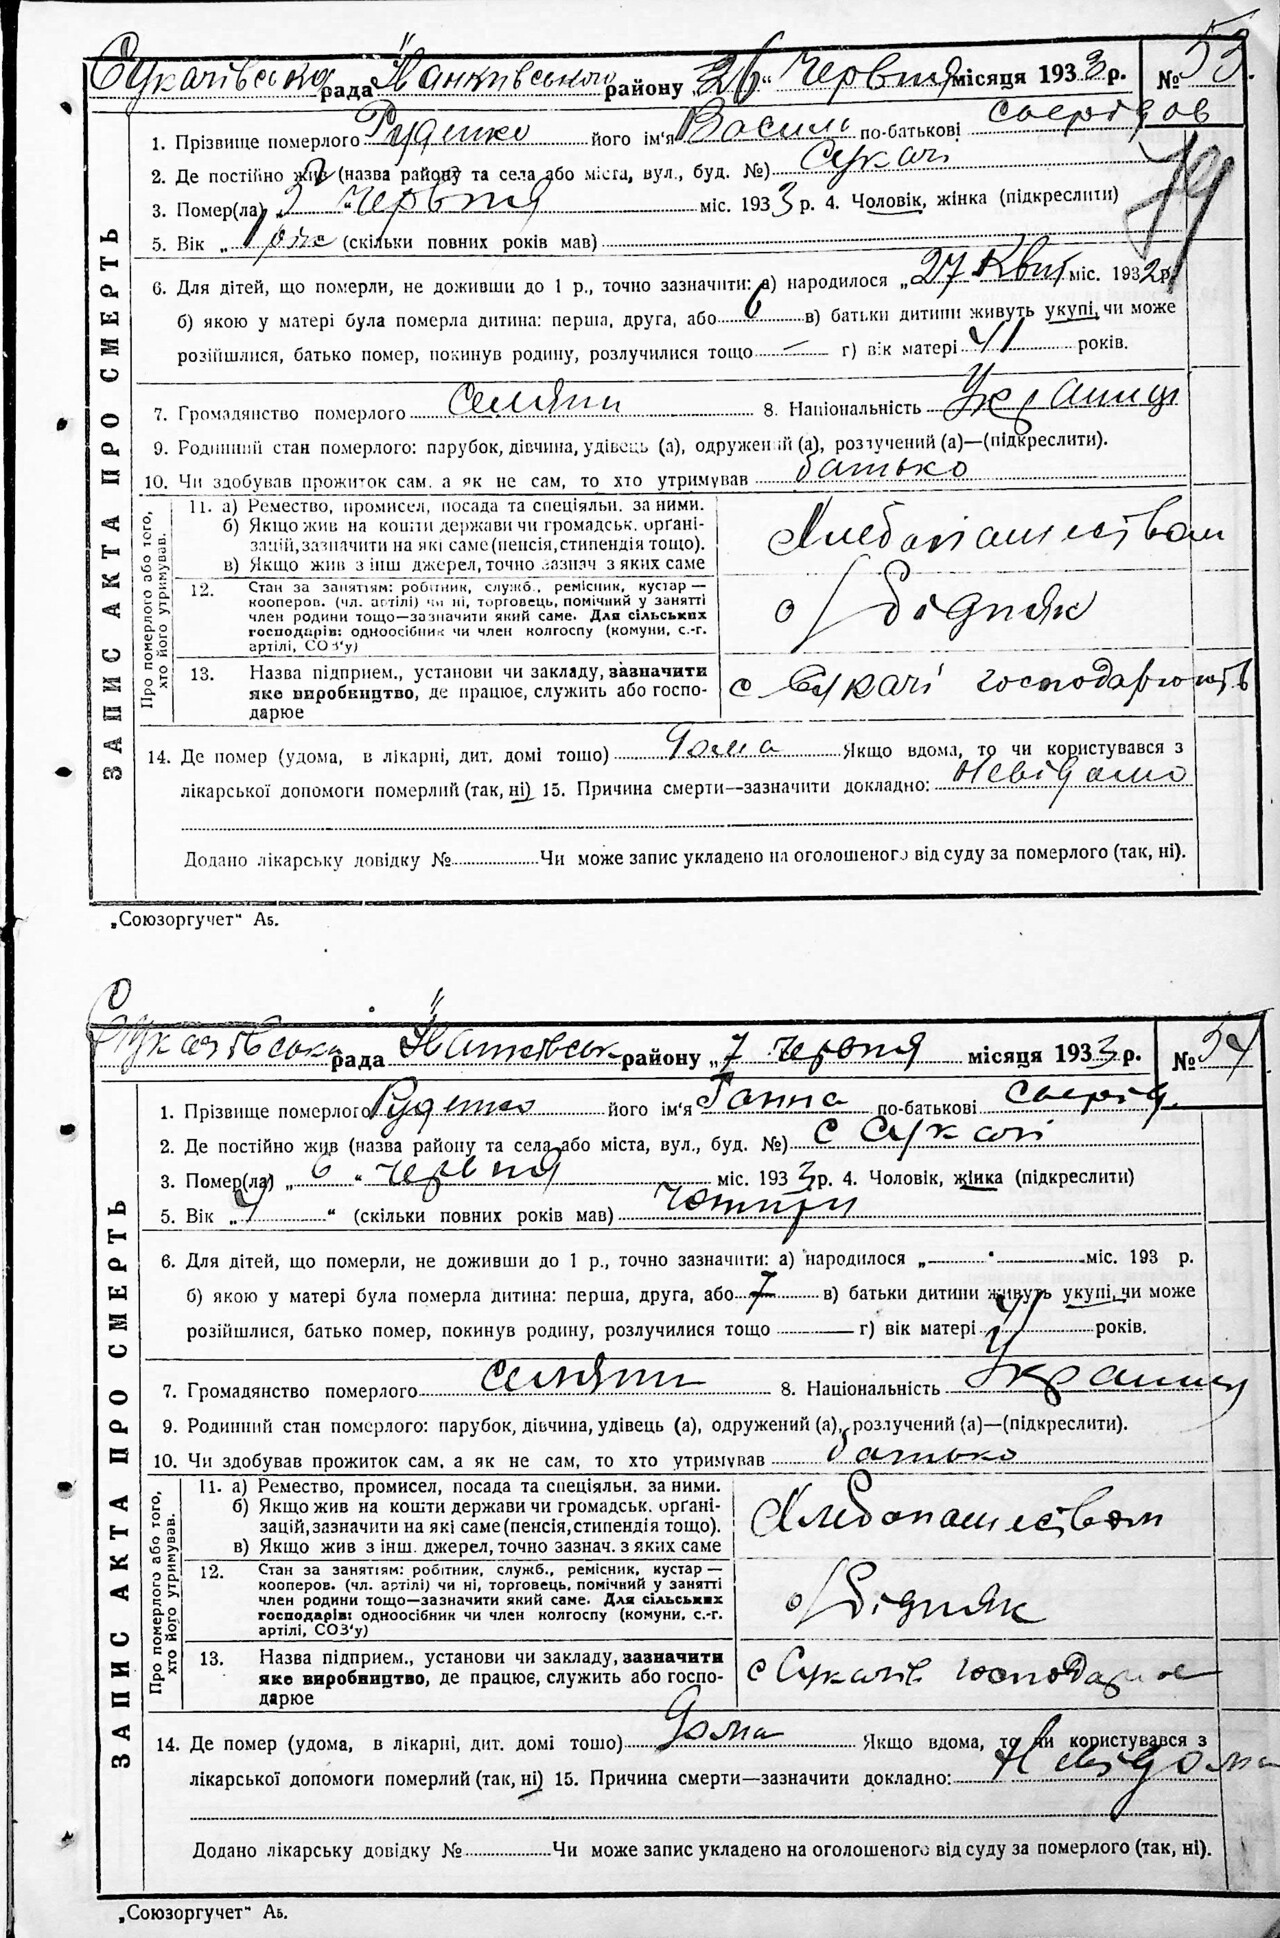 Сукачівська рада Іванківського району „26“ червня місяця 1933 р. № 53.
1. Прізвище померлого Руденко його ім'я Василь по-батькові Свєрідов
2. Де постійно жив (назва району та села або міста, вул., буд. №) Сукачі
19
3. Помер(ла) „2“ червня міс. 1933 р. 4. Чоловік, жінка (підкреслити)
5. Вік „1 “ (скільки повних років мав)
6. Для дітей, що померли, не доживши до 1 р., точно зазначити: а) народилося „27 Квіт міс. 1932 р.
б) якою у матері була померла дитина: перша, друга, або 6 в) батьки дитини живуть укупі, чи може
розійшлися, батько помер, покинув родину, розлучилися тощо — г) вік матері 41 років.
7. Громадянство померлого селянин 8. Національність Украинец
9. Родинний стан померлого: парубок, дівчина, удівець (а), одружений (а), розлучений (а)—(підкреслити).
10. Чи здобував прожиток сам, а як не сам, то хто утримував батько
Про померлого або того, хто його утримував.
11. а) Ремество, промисел, посада та спеціяльн. за ними.
б) Якщо жив на кошти держави чи громадськ. органі-
зацій, зазначити на які саме (пенсія, стипендія тощо).
в) Якщо жив з інш джерел, точно зазнач з яких саме
Хлебопашеством
12. Стан за заняттям: робітник, служб., ремісник, кустар—
кооперов. (чл. артілі) чи ні, торговець, помічний у занятті
член родини тощо—зазначити який саме. Для сільських
господарів: одноосібник чи член колгоспу (комуни, с.-г.
артілі, СОЗ'у)
о/бідняк
13. Назва підприєм., установи чи закладу, зазначити
яке виробництво, де працює, служить або госпо-
дарюе
с Сукачі
14. Де помер (удома, в лікарні, дит. домі тощо) Дома Якщо вдома, то чи користувався з
лікарської допомоги померлий (так, ні) 15. Причина смерти—зазначити докладно: Невідомо
Додано лікарську довідку № Чи може запис укладено на оголошеного від суду за померлого (так, ні).
ЗАПИС АКТА ПРО СМЕРТЬ
„Союзоргучет“ А5.
Сукачівська рада району „7 червня місяця 1933 р. № 54
1. Прізвище померлого Руденко його ім'я Ганна по-батькові Свєрід.
2. Де постійно жив (назва району та села або міста, вул., буд. №) с Сукачі
3. Помер(ла) „6“ червня міс. 1933 р. 4. Чоловік, жінка (підкреслити)
5. Вік „4“ (скільки повних років мав) Чотири
6. Для дітей, що померли, не доживши до 1 р., точно зазначити: а) народилося „ міс. 193 р.
б) якою у матері була померла дитина: перша, друга, або 7 в) батьки дитини живуть укупі, чи може
розійшлися, батько помер, покинув родину, розлучилися тощо г) вік матері 41 років.
7. Громадянство померлого селянин 8. Національність Украинец
9. Родинний стан померлого: парубок, дівчина, удівець (а), одружений (а), розлучений (а)—(підкреслити).
10. Чи здобував прожиток сам, а як не сам, то хто утримував батько
Про померлого або того, хто його утримував.
11. а) Ремество, промисел, посада та спеціяльн. за ними.
б) Якщо жив на кошти держави чи громадськ. органі-
зацій, зазначити на які саме (пенсія, стипендія тощо).
в) Якщо жив з інш. джерел, точно зазнач. з яких саме
Хлебопашеством
12. Стан за заняттям: робітник, служб., ремісник, кустар—
кооперов. (чл. артілі) чи ні, торговець, помічний у занятті
член родини тощо—зазначити який саме. Для сільських
господарів: одноосібник чи член колгоспу (комуни, с.-г.
артілі, СОЗ'у)
о/бідняк
13. Назва підприєм., установи чи закладу, зазначити
яке виробництво, де працює, служить або госпо-
дарюе
с Сукачів
14. Де помер (удома, в лікарні, дит. домі тощо) Дома Якщо вдома, то чи користувався з
лікарської допомоги померлий (так, ні) 15. Причина смерти—зазначити докладно: Невідома
Додано лікарську довідку № Чи може запис укладено на оголошеного від суду за померлого (так, ні).
ЗАПИС АКТА ПРО СМЕРТЬ
„Союзоргучет“ А5.